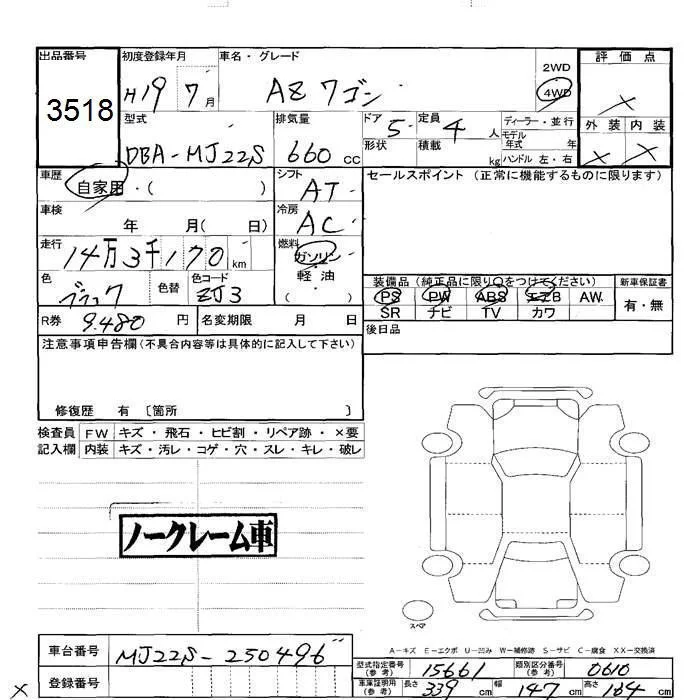 出品番号 初度登録年月 車名・グレード 2WD 評価点
3518 H19 7月 AZワゴン 4WD ×
型式 排気量 ドア 5 定員 4人 ディーラー・並行 外装 内装
DBA-MJ22S 660cc 形状 積載 kg モデル年式 年 × ×
ハンドル 左・右
車歴 自家用・( ) シフト AT セールスポイント (正常に機能するものに限ります)
車検 年 月( 日) 冷房 AC
走行 14万3千170km 燃料 ガソリン
軽油
色 ブラック 色替 色コード ZJ3 ( )
装備品 (純正品に限り○をつけてください) 新車保証書
PS PW ABS エアB AW 有・無
SR ナビ TV カワ
R券 9.480円 名変期限 月 日 後日品
注意事項申告欄(不具合内容等は具体的に記入して下さい)
修復歴 有 〔箇所 〕
検査員 FW キズ・飛石・ヒビ割・リペア跡・×要
記入欄 内装 キズ・汚レ・コゲ・穴・スレ・キレ・破レ
ノークレーム車
スペア
A-キズ E-エクボ U-凹み W-補修跡 S-サビ C-腐食 XX-交換済
車台番号 MJ22S-250496
型式指定番号(参考) 15661 類別区分番号(参考) 0610
登録番号 車庫証明用(参考) 長さ 339cm 幅 147cm 高さ 164cm
×